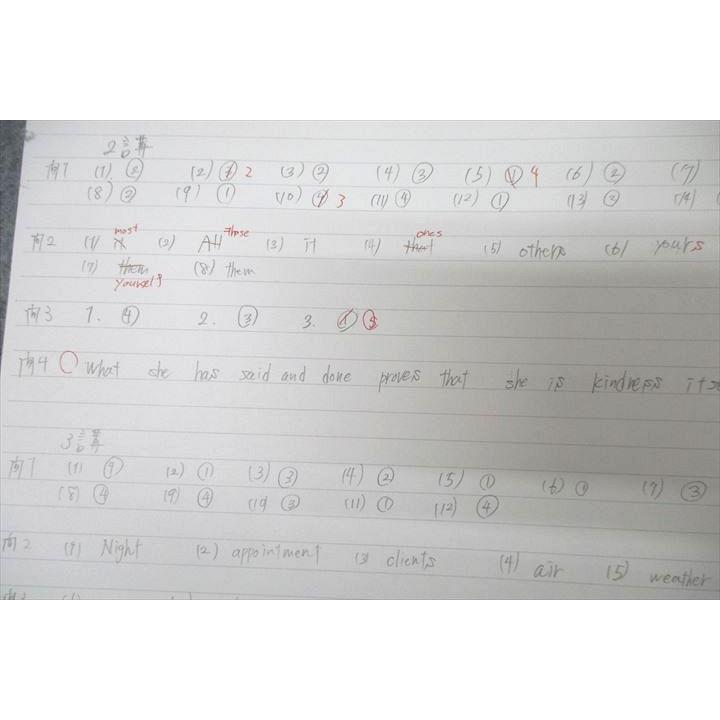 2講
問1 (1) ② (2) ① 2 (3) ② (4) ③ (5) ① 4 (6) ② (7)
(8) ② (9) ① (10) ④ 3 (11) ④ (12) ① (13) ② (14)
most those ones
問2 (1) it (2) All (3) it (4) that (5) others (6) yours
(7) them (8) them
yourself
問3 1. ④ 2. ③ 3. ① ⑤
問4 What she has said and done proves that she is kindness its
3講
問1 (1) (2) ① (3) ③ (4) ② (5) ① (6) ① (7) ③
(8) ④ (9) ④ (10) ③ (11) ① (12) ④
問2 (1) Night (2) appointment (3) clients (4) air (5) weather